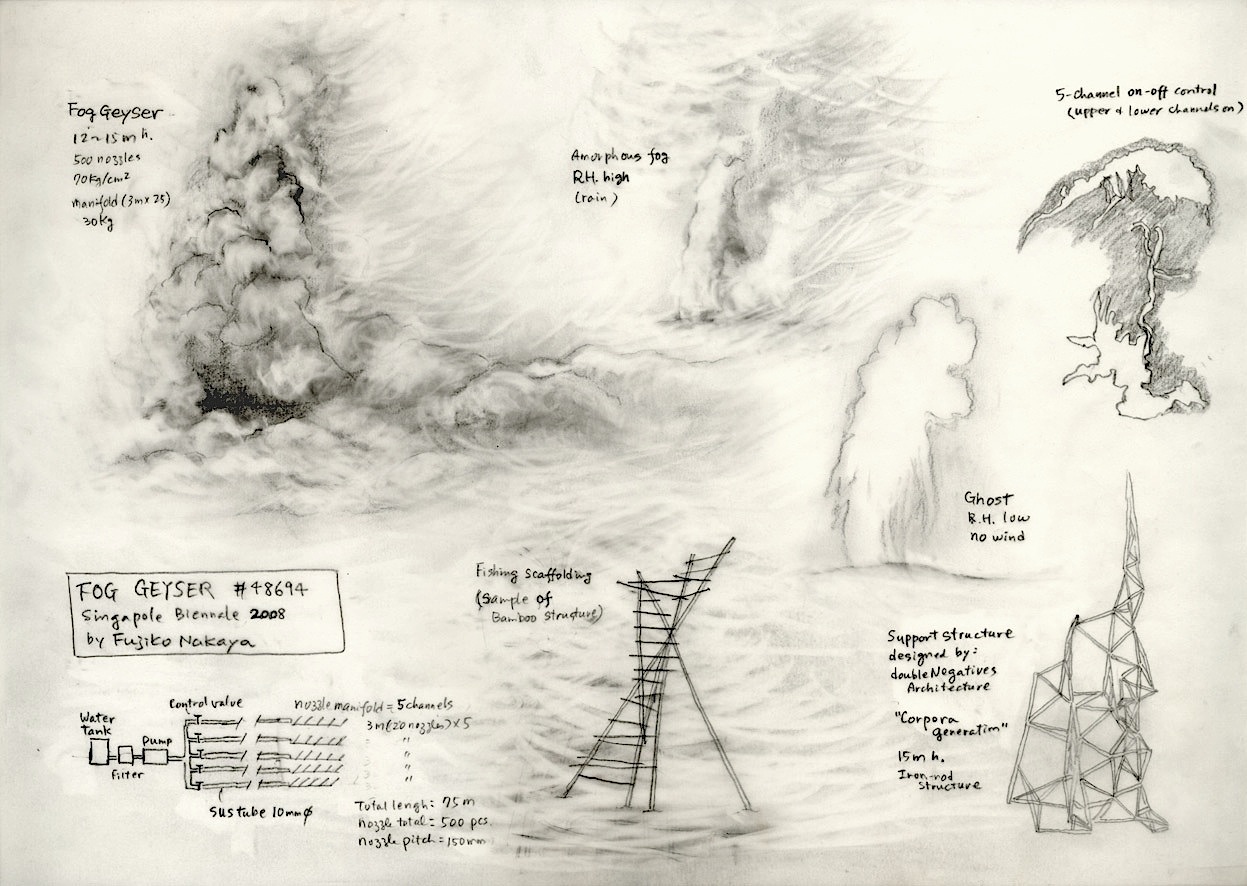 Fog Geyser
12~15 m h.
500 nozzles
70kg/cm²
manifold (3m x 25)
30kg
Amorphous fog
R.H. high
(rain)
5-channel on-off control
(upper & lower channels on)
Ghost
R.H. low
no wind
FOG GEYSER #48694
Singapole Biennale 2008
by Fujiko Nakaya
Fishing scaffolding
(Sample of
Bamboo structure)
Support structure
designed by:
doubleNegatives
Architecture
"Corpora
generatim"
15m h.
Iron-rod
structure
Control valve
nozzle manifold = 5 channels
3m (20 nozzles) x 5
"
"
"
Water
tank
Filter
Pump
sus tube 10mmφ
Total lengh = 75 m
nozzle total = 500 pcs.
nozzle pitch = 150 mm